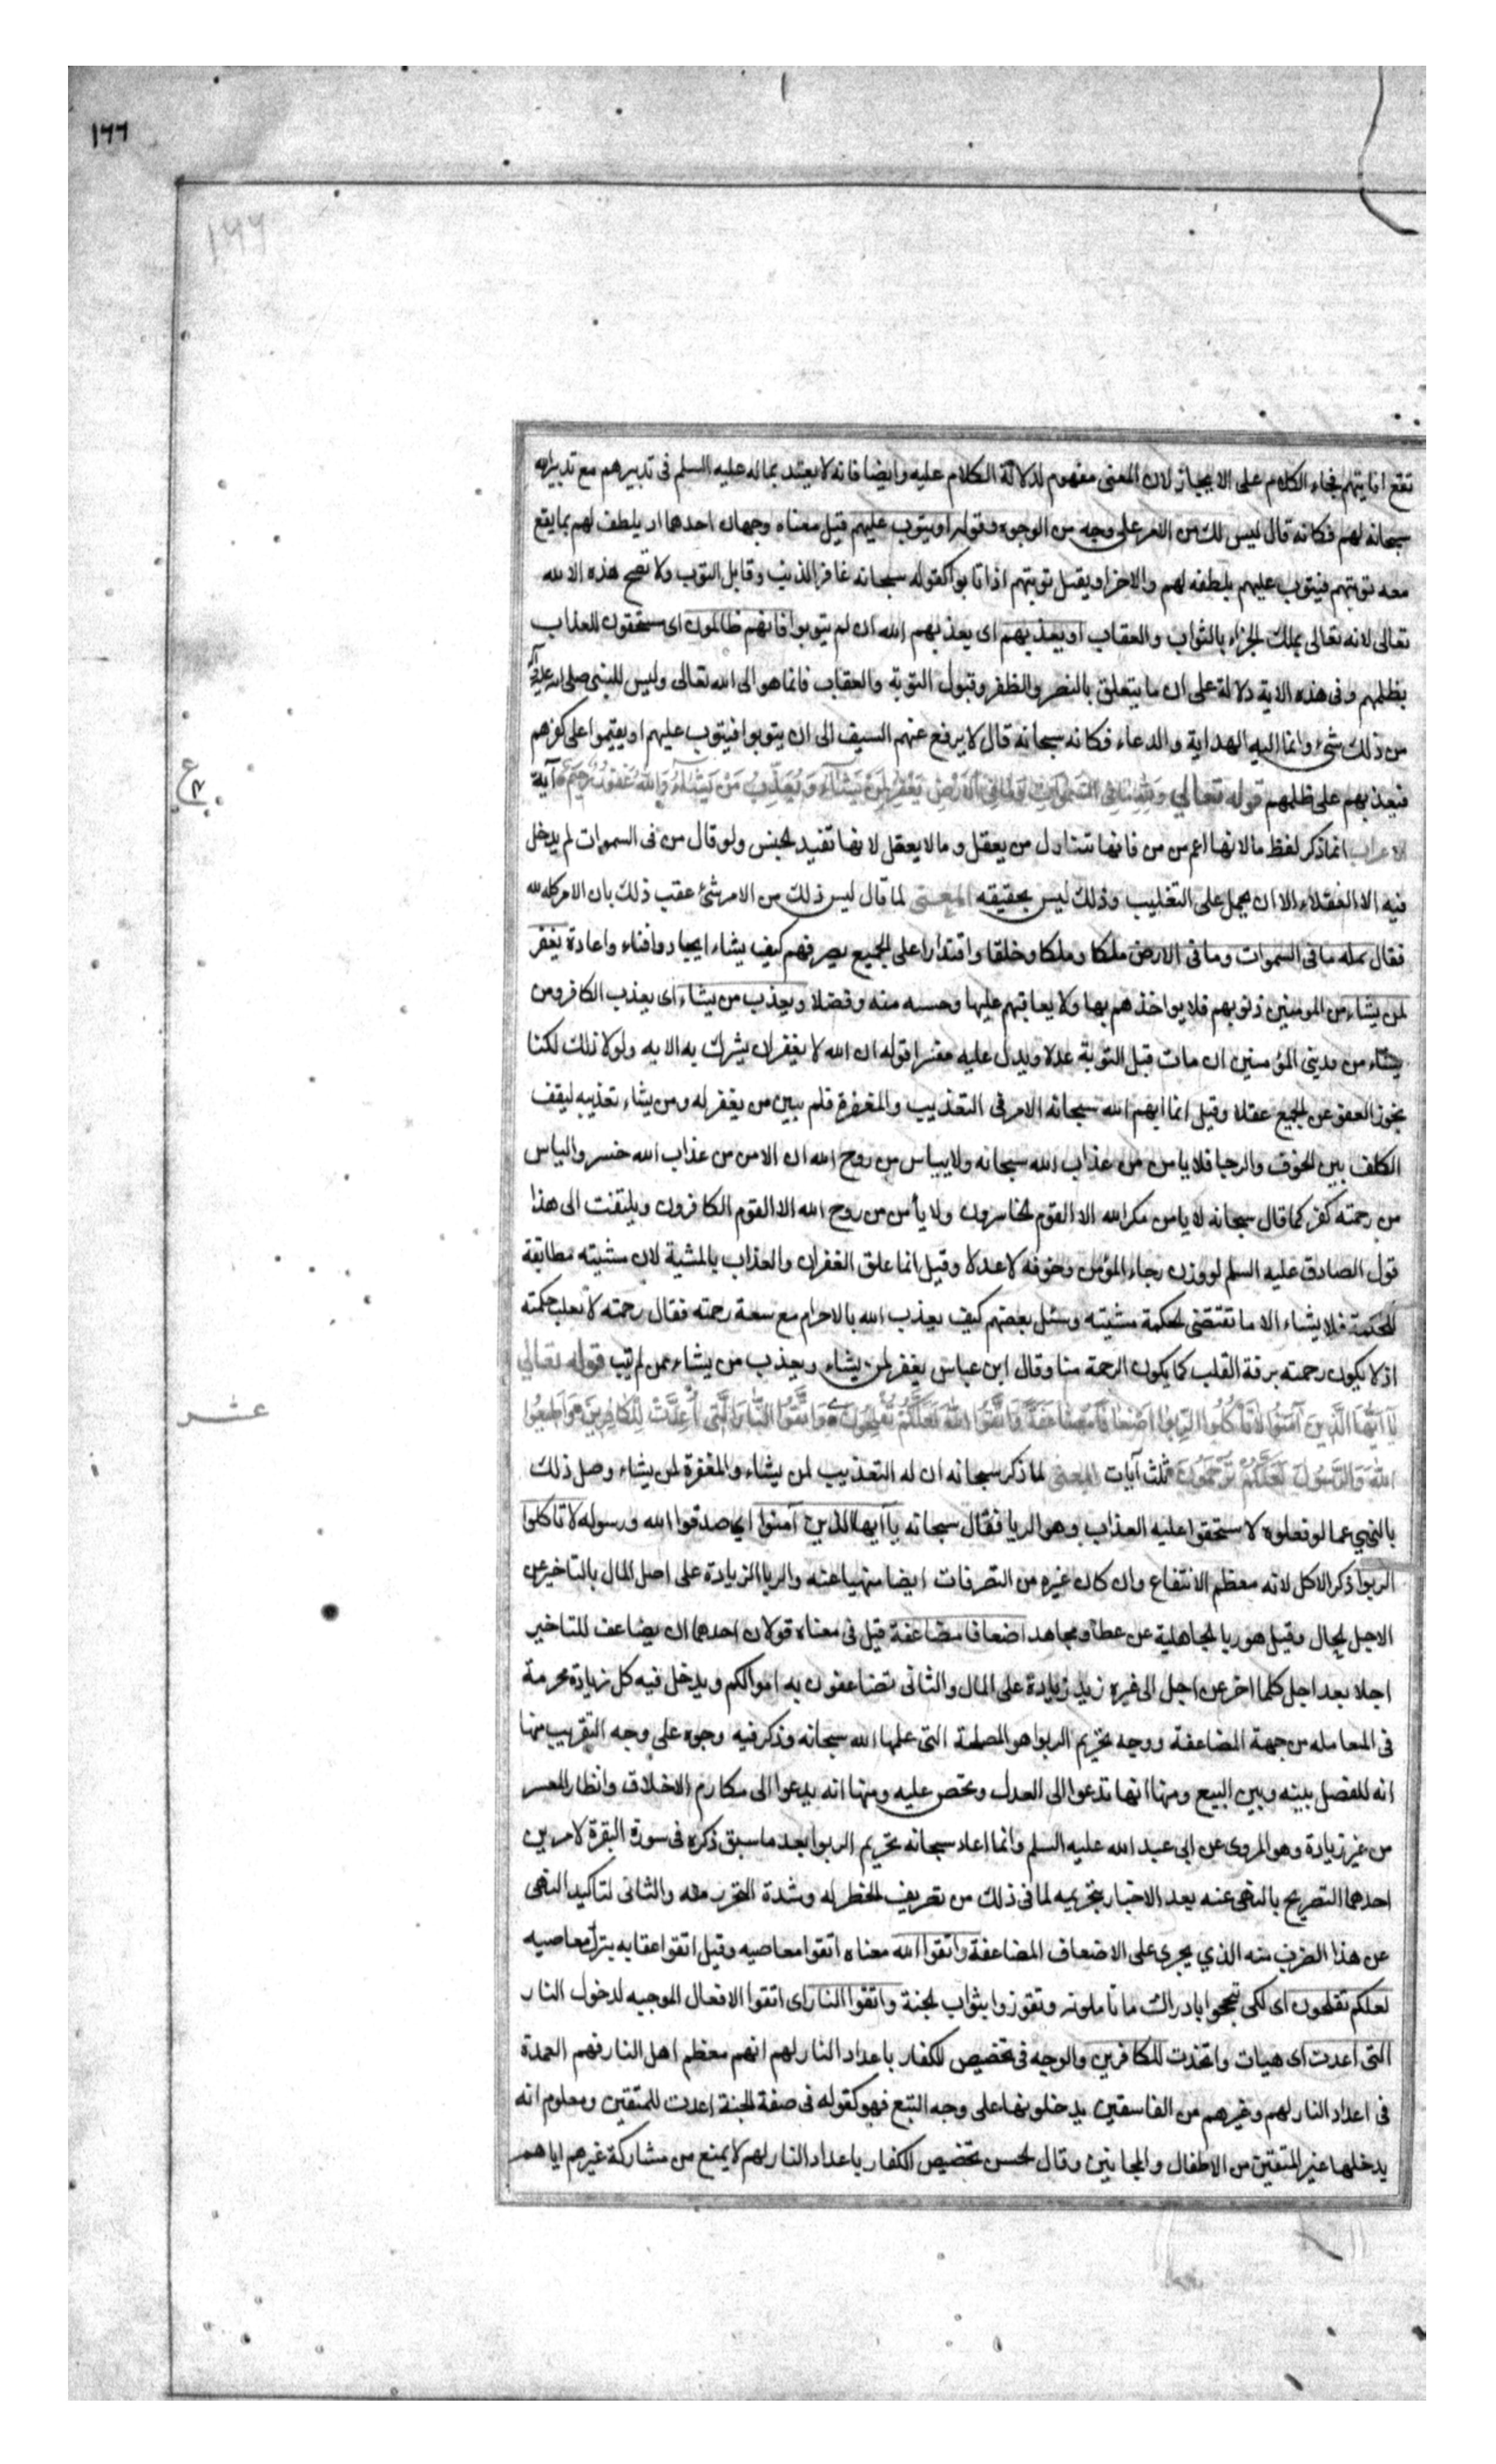 ١٦٦
١٦٦
تقع انابتهم فجاء الكلام على الايجاز لان المعنى مفهوم لدلالة الكلام عليه وايضا فانه لا يعتد بماله عليه السلم فى تدبيرهم مع تدبيرالله
سبحانه لهم فكانه قال ليس لك من الامر على وجه من الوجوه وقوله او يتوب عليهم قيل معناه وجهان احدهما ان يلطف لهم بما يقع
معه توبتهم فيتوب عليهم بلطفه لهم والاخر او يقبل توبتهم اذا تابوا كقوله سبحانه غافر الذنب وقابل التوب ولا تصح هذه الا لله
تعالى لانه تعالى يملك الجزاء بالثواب والعقاب او يعذبهم اى يعذبهم الله ان لم يتوبوا فانهم ظالمون اى مستحقون للعذاب
بظلمهم وفى هذه الاية دلالة على ان ما يتعلق بالنصر والظفر وقبول التوبة والعقاب فانما هو الى الله تعالى وليس للنبى صلى الله عليه وآله
من ذلك شئ وانما اليه الهداية والدعاء فكانه سبحانه قال لا يرفع عنهم السيف الى ان يتوبوا فيتوب عليهم او يقيموا على كفرهم
فيعذبهم على ظلمهم قوله تعالي وَلِلّهِ مَا فِى السَّمٰوَاتِ وَمَا فِى الْاَرْضِ يَغْفِرُ لِمَنْ يَشَآءُ وَ يُعَذِّبُ مَنْ يَشَآءُ وَاللّٰهُ غَفُورٌ رَحِيمٌ آية
ع
الاعراب انما ذكر لفظ ما لانها اعم من من فانها تتناول من يعقل وما لا يعقل لانها تفيد الجنس ولو قال من فى السموات لم يدخل
فيه الا العقلاء الا ان يحمل على التغليب وذلك ليس بحقيقه المعنى لما قال ليس ذلك من الامر شئ عقب ذلك بان الامر كله لله
فقال ولله ما فى السموات وما فى الارض ملكا وملكا وخلقا واقتدارا على الجميع يصرفهم كيف يشاء ايجادا وافناء واعادة يغفر
لمن يشاء من المومنين ذنوبهم فلا يواخذهم بها ولا يعاقبهم عليها وحسبه منه وفضلا ويعذب من يشاء اى يعذب الكافر ومن
يشاء من مذنبى المؤمنين ان مات قبل التوبة عدلا ويدل عليه مفسرا قوله ان الله لا يغفر ان يشرك به الايه ولولا ذلك لكنا
نجوز العفو عن الجميع عقلا وقيل انما ابهم الله سبحانه الامر فى التعذيب والمغفرة فلم يبين من يغفر له ومن يشاء تعذيبه ليقف
المكلف بين الخوف والرجا فلا يامن من عذاب الله سبحانه ولا يياس من روح الله ان الامن من عذاب الله خسر والياس
من رحمته كفر كما قال سبحانه لا يامن مكر الله الا القوم الخاسرون ولا يأس من روح الله الا القوم الكافرون ويلتفت الى هذا
قول الصادق عليه السلم لو وزن رجاء المؤمن وخوفه لاعدلا وقيل انما علق الغفران والعذاب بالمشية لان مشيته مطابقة
للحكمة فلا يشاء الا ما تقتضى الحكمة مشيته وسئل بعضهم كيف يعذب الله بالاجرام مع سعة رحمته فقال رحمته لا تغلب حكمته
اذ لا يكون رحمته برقة القلب كما يكون الرحمة منا وقال ابن عباس يغفر لمن يشاء ويعذب من يشاء ممن لم يتب قوله تعالي
يَآ اَيُّهَا الَّذِينَ آمَنُوا لَا تَأْكُلُوا الرِّبٰوا اَضْعَافًا مُضَاعَفَةً وَاتَّقُوا اللّٰهَ لَعَلَّكُمْ تُفْلِحُونَ وَاتَّقُوا النَّارَ الَّتِى اُعِدَّتْ لِلْكَافِرِينَ وَاَطِيعُوا
عشر
اللّٰهَ وَالرَّسُولَ لَعَلَّكُمْ تُرْحَمُونَ ثلث آيات المعنى لما ذكر سبحانه ان له التعذيب لمن يشاء والمغفرة لمن يشاء وصل ذلك
بالنهي عما لو فعلوه لاستحقوا عليه العذاب وهو الربا فقال سبحانه يا ايها الذين آمنوا اي صدقوا الله ورسوله لا تاكلوا
الربوا ذكر الاكل لانه معظم الانتفاع وان كان غيره من التصرفات ايضا منهيا عنه والربا الزيادة على اصل المال بالتاخير عن
الاجل الحال وقيل هو ربا الجاهلية عن عطا ومجاهد اضعافا مضاعفة قيل فى معناه قولان احدهما ان يضاعف للتاخير
اجلا بعد اجل كلما اخر عن اجل الى غيره زيد زيادة على المال والثانى تضاعفون به اموالكم ويدخل فيه كل زيادة محرمة
فى المعامله من جهة المضاعفة ووجه تحريم الربوا هو المصلحة التى علمها الله سبحانه وذكر فيه وجوه على وجه التقريب منها
انه للفصل بينه وبين البيع ومنها انها تدعوا الى العدل ويحض عليه ومنها انه يدعوا الى مكارم الاخلاق وانظار المعسر
من غير زيادة وهو المروى عن ابى عبد الله عليه السلم وانما اعاد سبحانه تحريم الربوا بعد ما سبق ذكره فى سورة البقرة لامرين
احدهما التصريح بالنهى عنه بعد الاخبار بتحريمه لما فى ذلك من تصريف الحظر له وشدة التحرز منه والثانى لتاكيد النهى
عن هذا الضرب منه الذي يجرى على الاضعاف المضاعفة واتقوا الله معناه اتقوا معاصيه وقيل اتقوا عقابه بترك معاصيه
لعلكم تفلحون اى لكى تنجحوا بادراك ما تاملونه وتفوزوا بثواب الجنة واتقوا النار اى اتقوا الافعال الموجبه لدخول النار
التى اعدت اى هيات واتخذت للكافرين والوجه فى تخصيص الكفار باعداد النار لهم انهم معظم اهل النار فهم العمدة
فى اعداد النار لهم وغيرهم من الفاسقين يدخلونها على وجه التبع فهو كقوله فى صفة الجنة اعدت للمتقين ومعلوم انه
يدخلها غير المتقين من الاطفال والمجانين وقال الحسن تخصيص الكفار باعداد النار لهم لا يمنع من مشاركة غيرهم اياهم